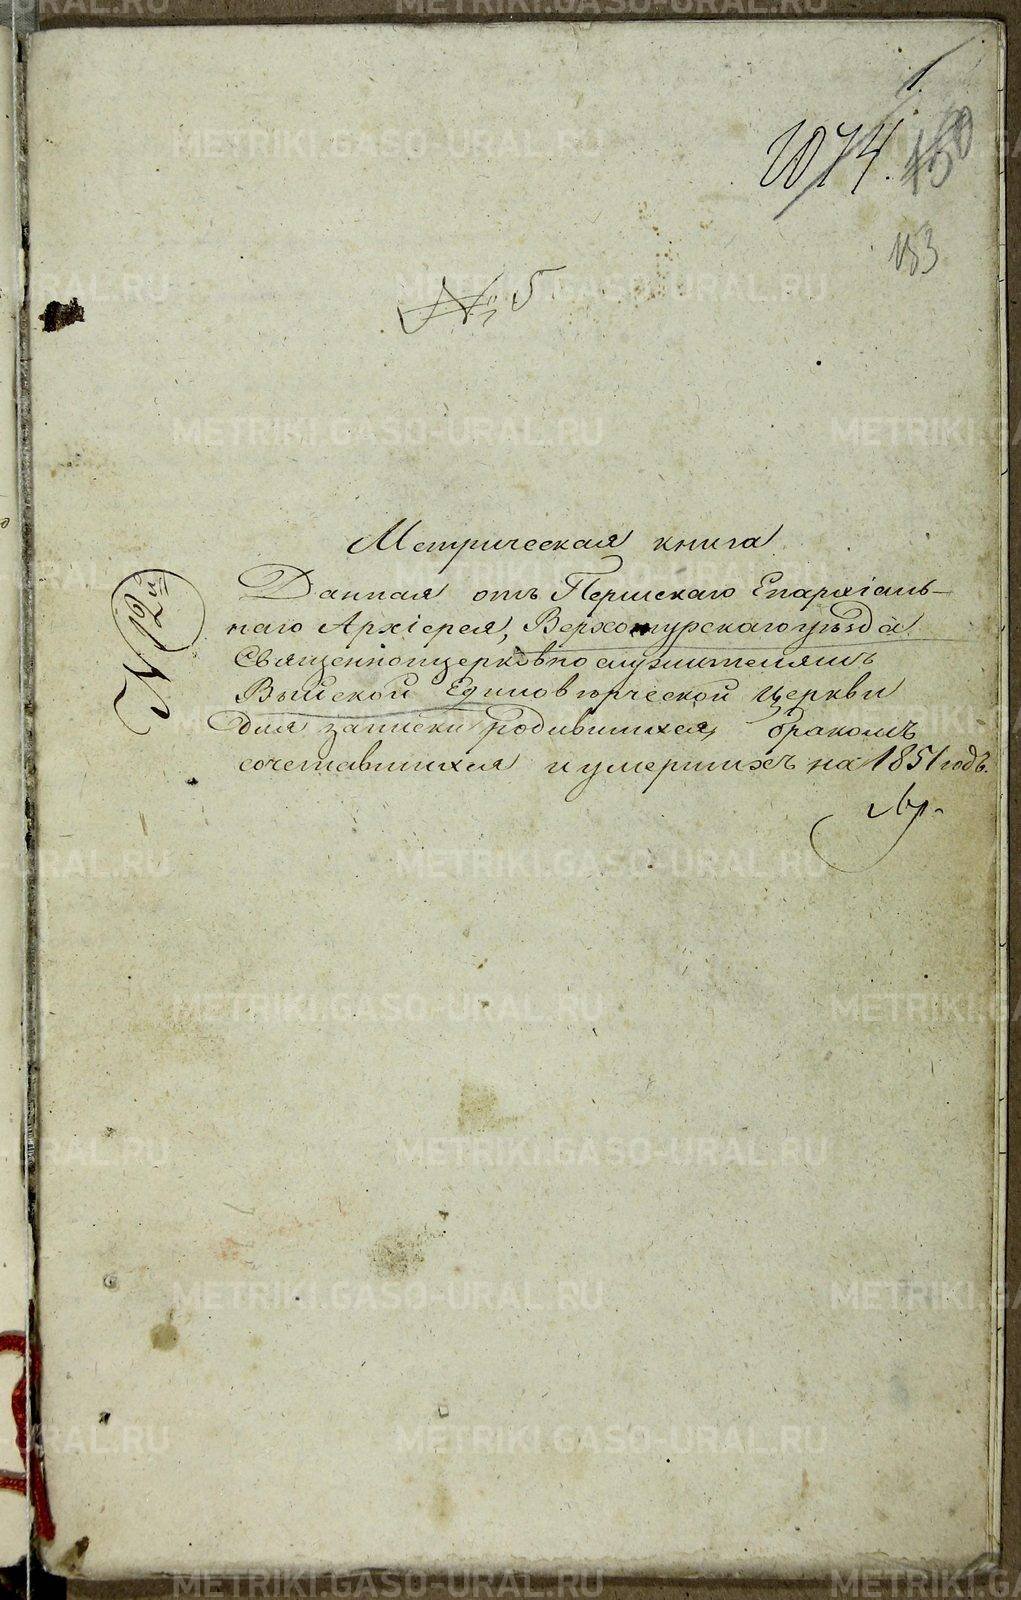 1.
1074. 150
183
№ 5
Метрическая книга
Данная отъ Пермскаго Епархіаль-
наго Архіерея, Верхотурскаго уѣзда
Священноцерковнослужителямъ
Выйской Единовѣрческой церкви
для записки родившихся, бракомъ
сочетавшихся и умершихъ на 1851 годъ.
№ 12й
METRIKI.GASO-URAL.RU